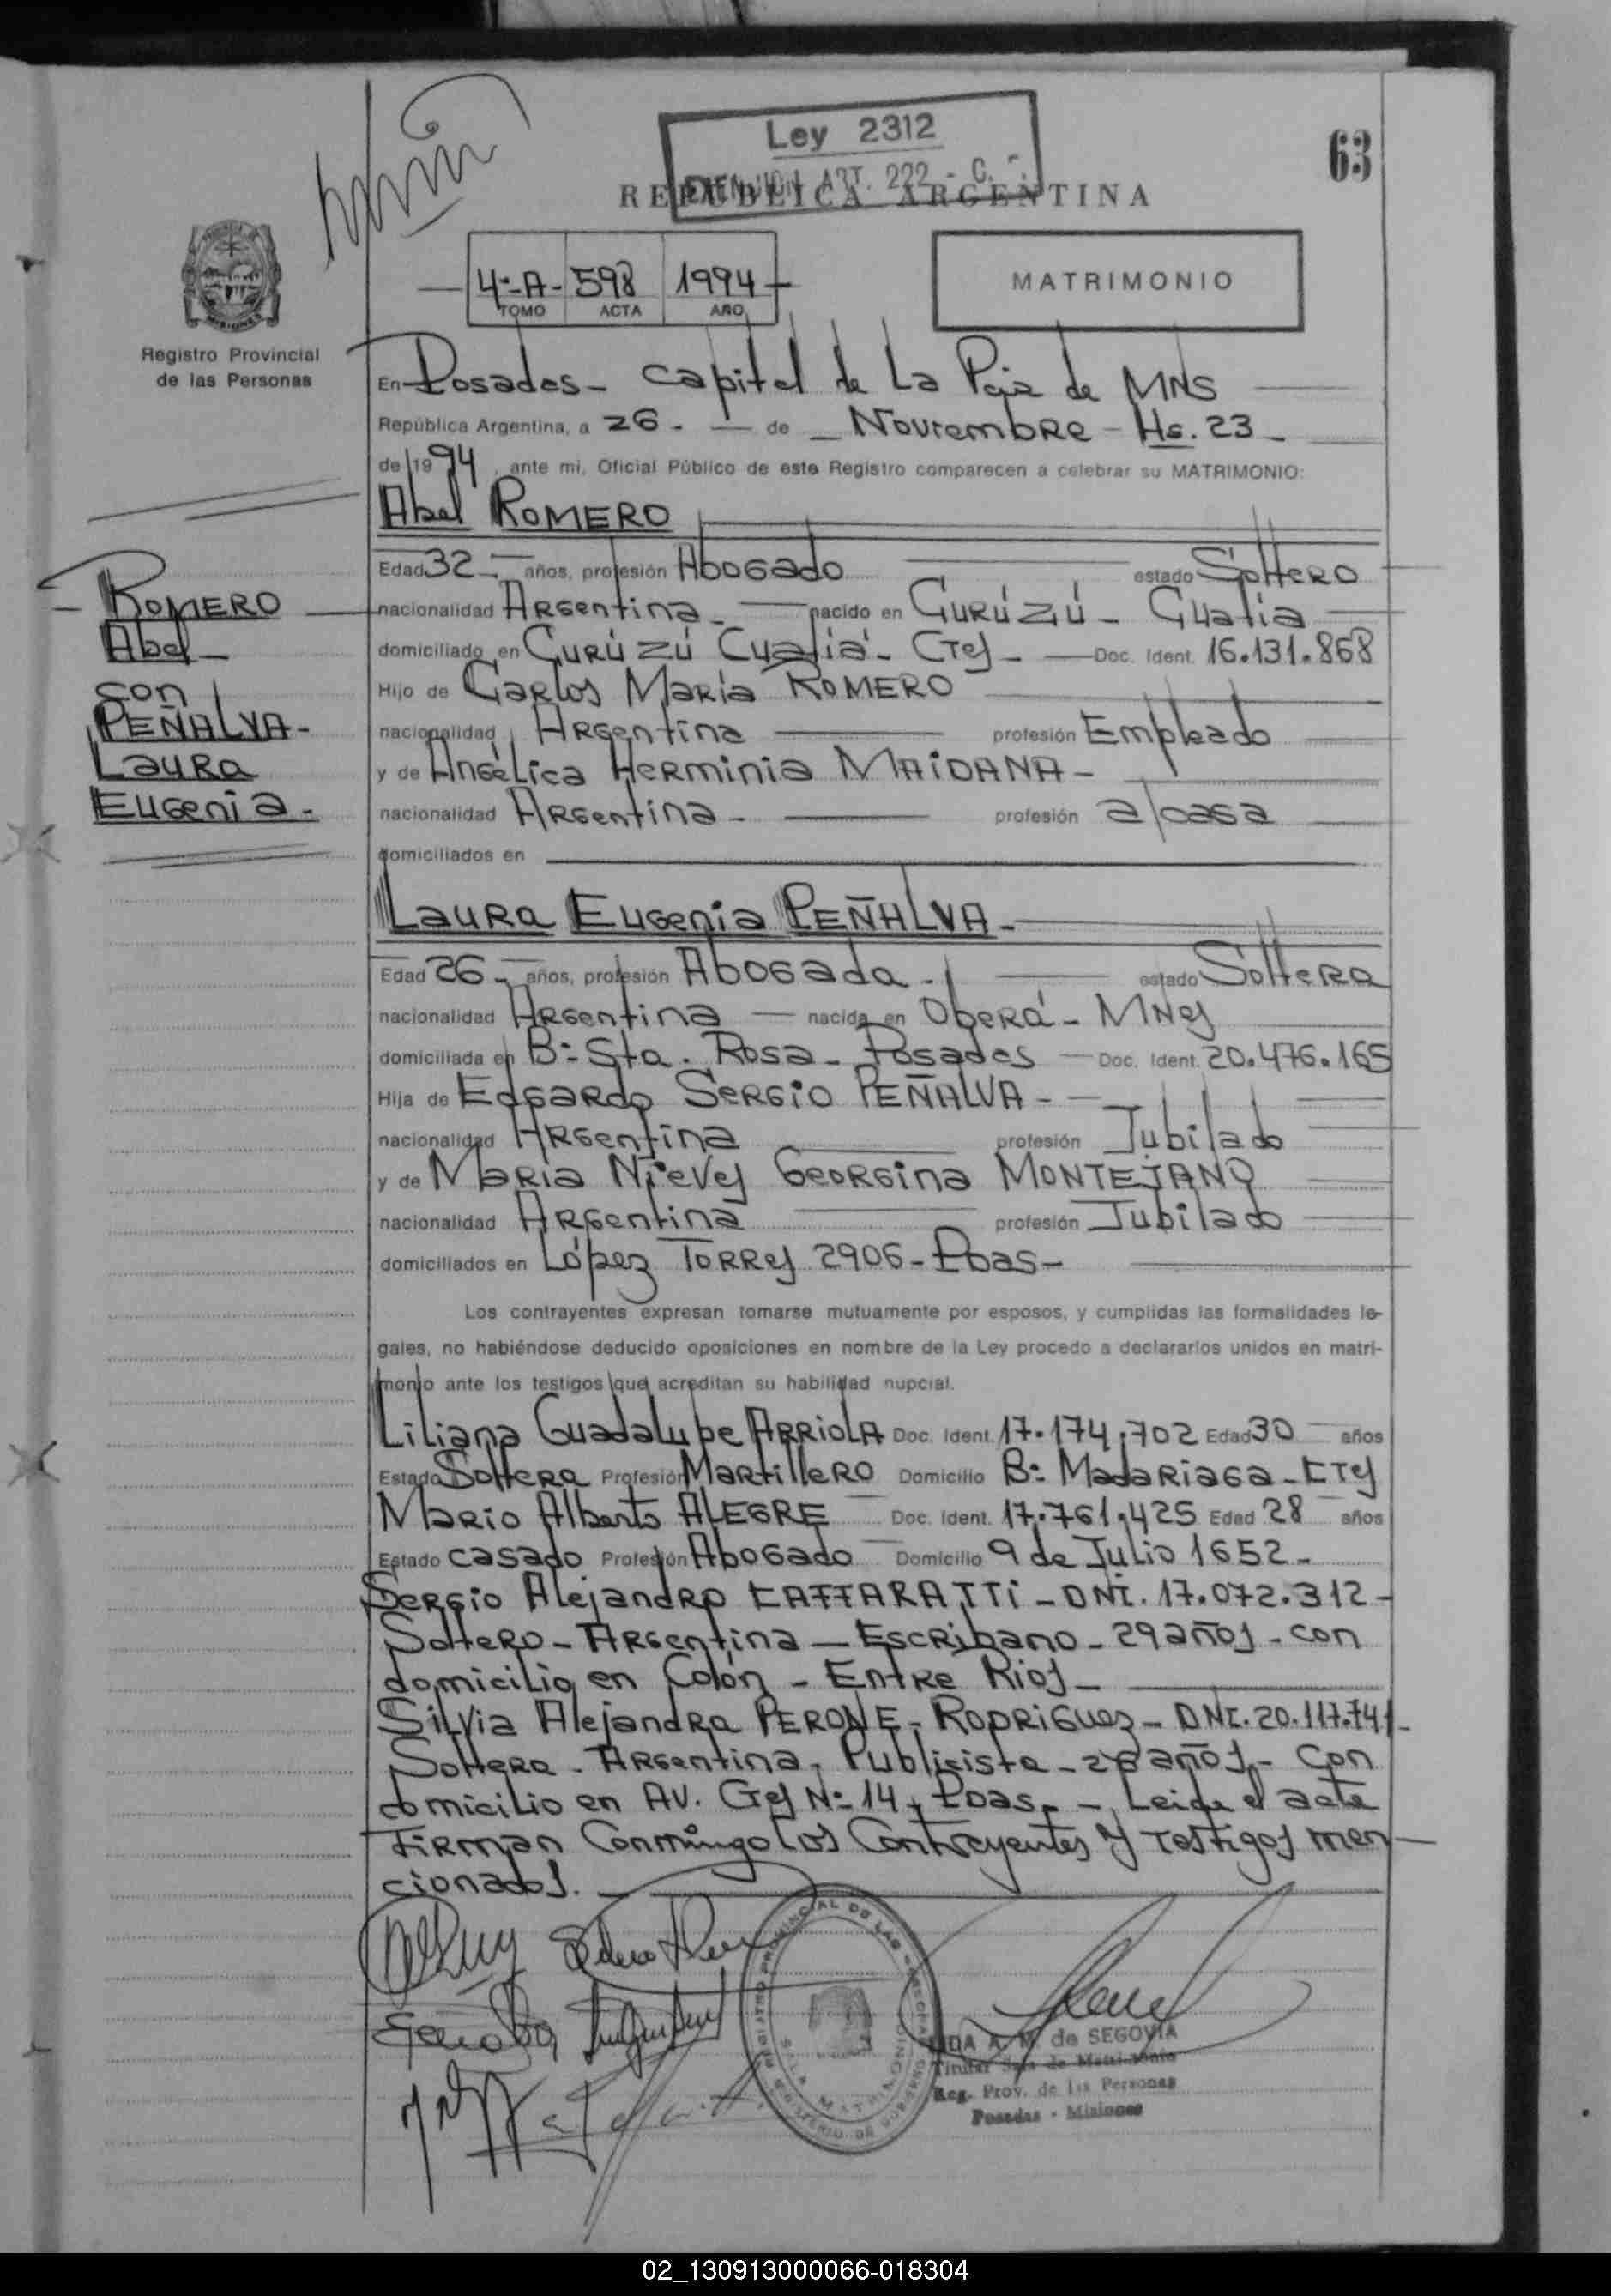 Ley 2312
EXENCION ART. 222 - C.
REPUBLICA ARGENTINA
63
4º-A- 598 1994
TOMO ACTA AÑO
MATRIMONIO
MISIONES
Registro Provincial
de las Personas
En Posadas - Capital de La Pcia de MNS
República Argentina, a 26 - de - Noviembre - Hs. 23 -
de 1994, ante mi, Oficial Público de este Registro comparecen a celebrar su MATRIMONIO:
Abel ROMERO
Edad 32 - años, profesión Abogado estado Soltero
nacionalidad Argentina - nacido en Curúzú - Cuatia
domiciliado en Curúzú Cuatiá - Ctes - Doc. Ident. 16.131.868
Hijo de Carlos María ROMERO
nacionalidad Argentina profesión Empleado
y de Angélica Herminia MAIDANA -
nacionalidad Argentina - profesión a/casa
domiciliados en
ROMERO
Abel -
con
PEÑALVA -
Laura
Eugenia -
Laura Eugenia PEÑALVA -
Edad 26 - años, profesión Abogada - estado Soltera
nacionalidad Argentina nacida en Oberá - MNes
domiciliada en Bº Sta. Rosa - Posadas Doc. Ident. 20.476.165
Hija de Edgardo Sergio PEÑALVA -
nacionalidad Argentina profesión Jubilado
y de María Nieves Georgina MONTEJANO
nacionalidad Argentina profesión Jubilado
domiciliados en López Torres 2906 - Pdas -
Los contrayentes expresan tomarse mutuamente por esposos, y cumplidas las formalidades le-
gales, no habiéndose deducido oposiciones en nombre de la Ley procedo a declararlos unidos en matri-
monio ante los testigos que acreditan su habilidad nupcial.
Liliana Guadalupe ARRIOLA Doc. Ident. 17.174.702 Edad 30 años
Estado Soltera Profesión Martillero Domicilio Bº Madariaga - Ctes
Mario Alberto ALEGRE Doc. Ident. 17.761.425 Edad 28 años
Estado casado Profesión Abogado Domicilio 9 de Julio 1652 -
Sergio Alejandro CAFFARATTI - DNI. 17.072.312 -
Soltero - Argentina - Escribano - 29 años - con
domicilio en Colón - Entre Rios -
Silvia Alejandra PERONE - RODRIGUEZ - DNI. 20.117.741 -
Soltera - Argentina - Publicista - 28 años - Con
domicilio en AV. Ctes Nº 14, Pdas. - Leida el acta
Firman Conmingo Los Contrayentes y Testigos men
cionados.
A. M. de SEGOVIA
Titular Sala de Matrimonio
Reg. Prov. de las Personas
Posadas - Misiones
02_130913000066-018304